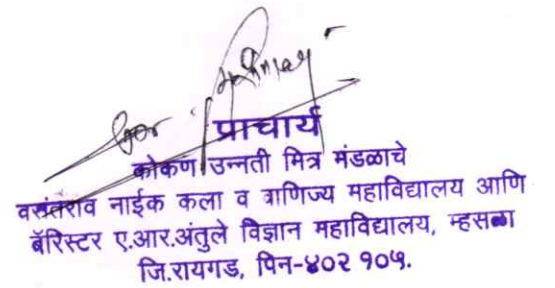 For
प्राचार्य
कोकण उन्नती मित्र मंडळाचे
वसंतराव नाईक कला व वाणिज्य महाविद्यालय आणि
बॅरिस्टर ए.आर.अंतुले विज्ञान महाविद्यालय, म्हसळा
जि.रायगड, पिन-४०२ १०५.